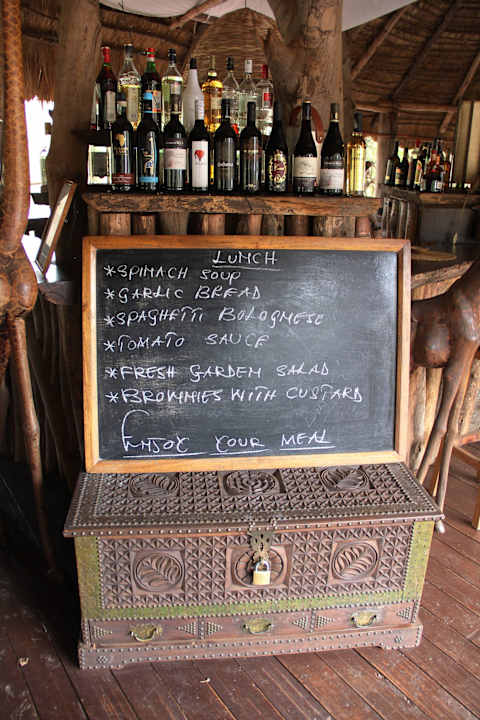 LUNCH
*SPINACH SOUP
*GARLIC BREAD
*SPAGHETTI BOLOGNESE
*TOMATO SAUCE
*FRESH GARDEN SALAD
*BROWNIES WITH CUSTARD
ENJOY YOUR MEAL